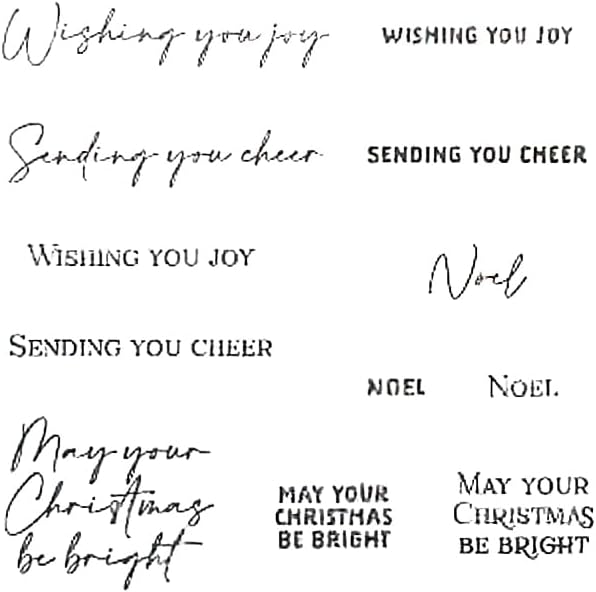 Wishing you joy
WISHING YOU JOY
Sending you cheer
SENDING YOU CHEER
WISHING YOU JOY
Noel
SENDING YOU CHEER
NOEL
NOEL
May your
Christmas
be bright
MAY YOUR
CHRISTMAS
BE BRIGHT
MAY YOUR
CHRISTMAS
BE BRIGHT